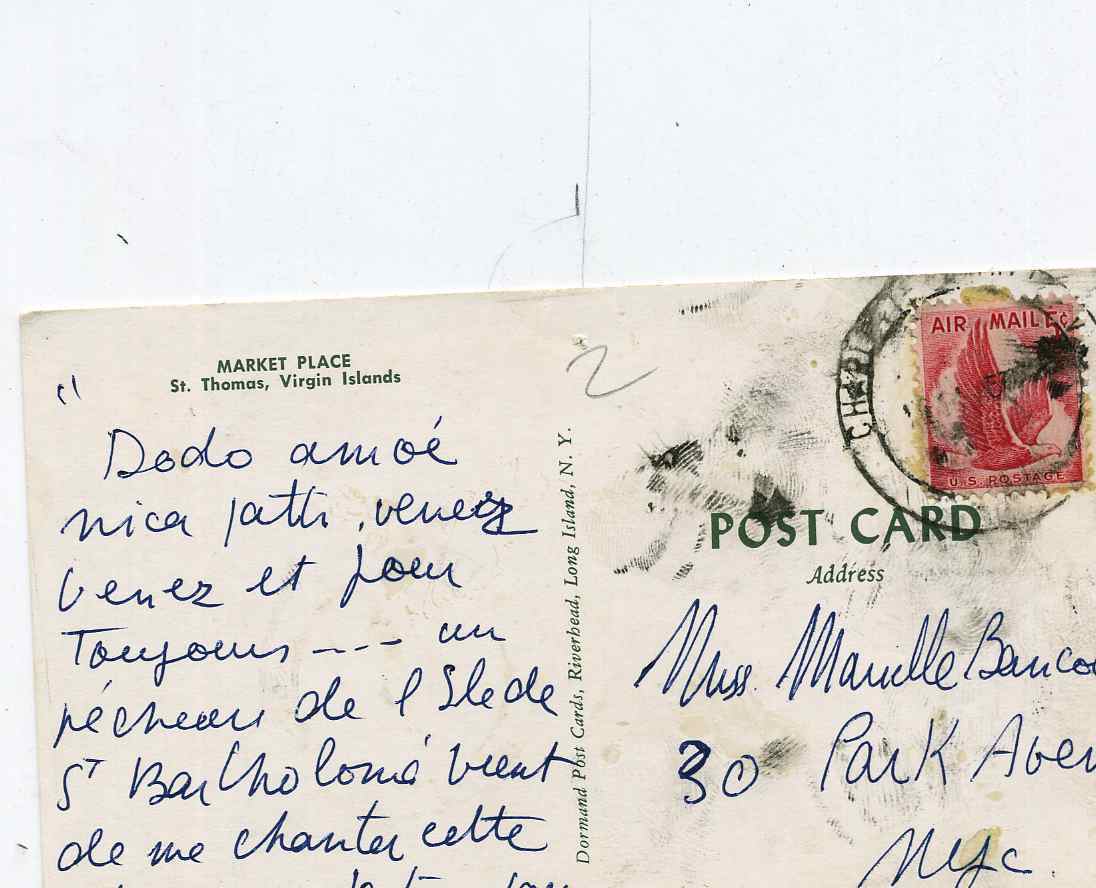 MARKET PLACE
St. Thomas, Virgin Islands
"
Dodo amoé
nica venez
venez et pour
Toujours --- un
pécheur de l'Isle de
St Bartholomé vient
de me chanter cette
Dormand Post Cards, Riverhead, Long Island, N. Y.
2
AIR MAIL 6¢
U.S. POSTAGE
CHARL
POST CARD
Address
Miss. Marielle Banco
30 Park Aven
Nyc.